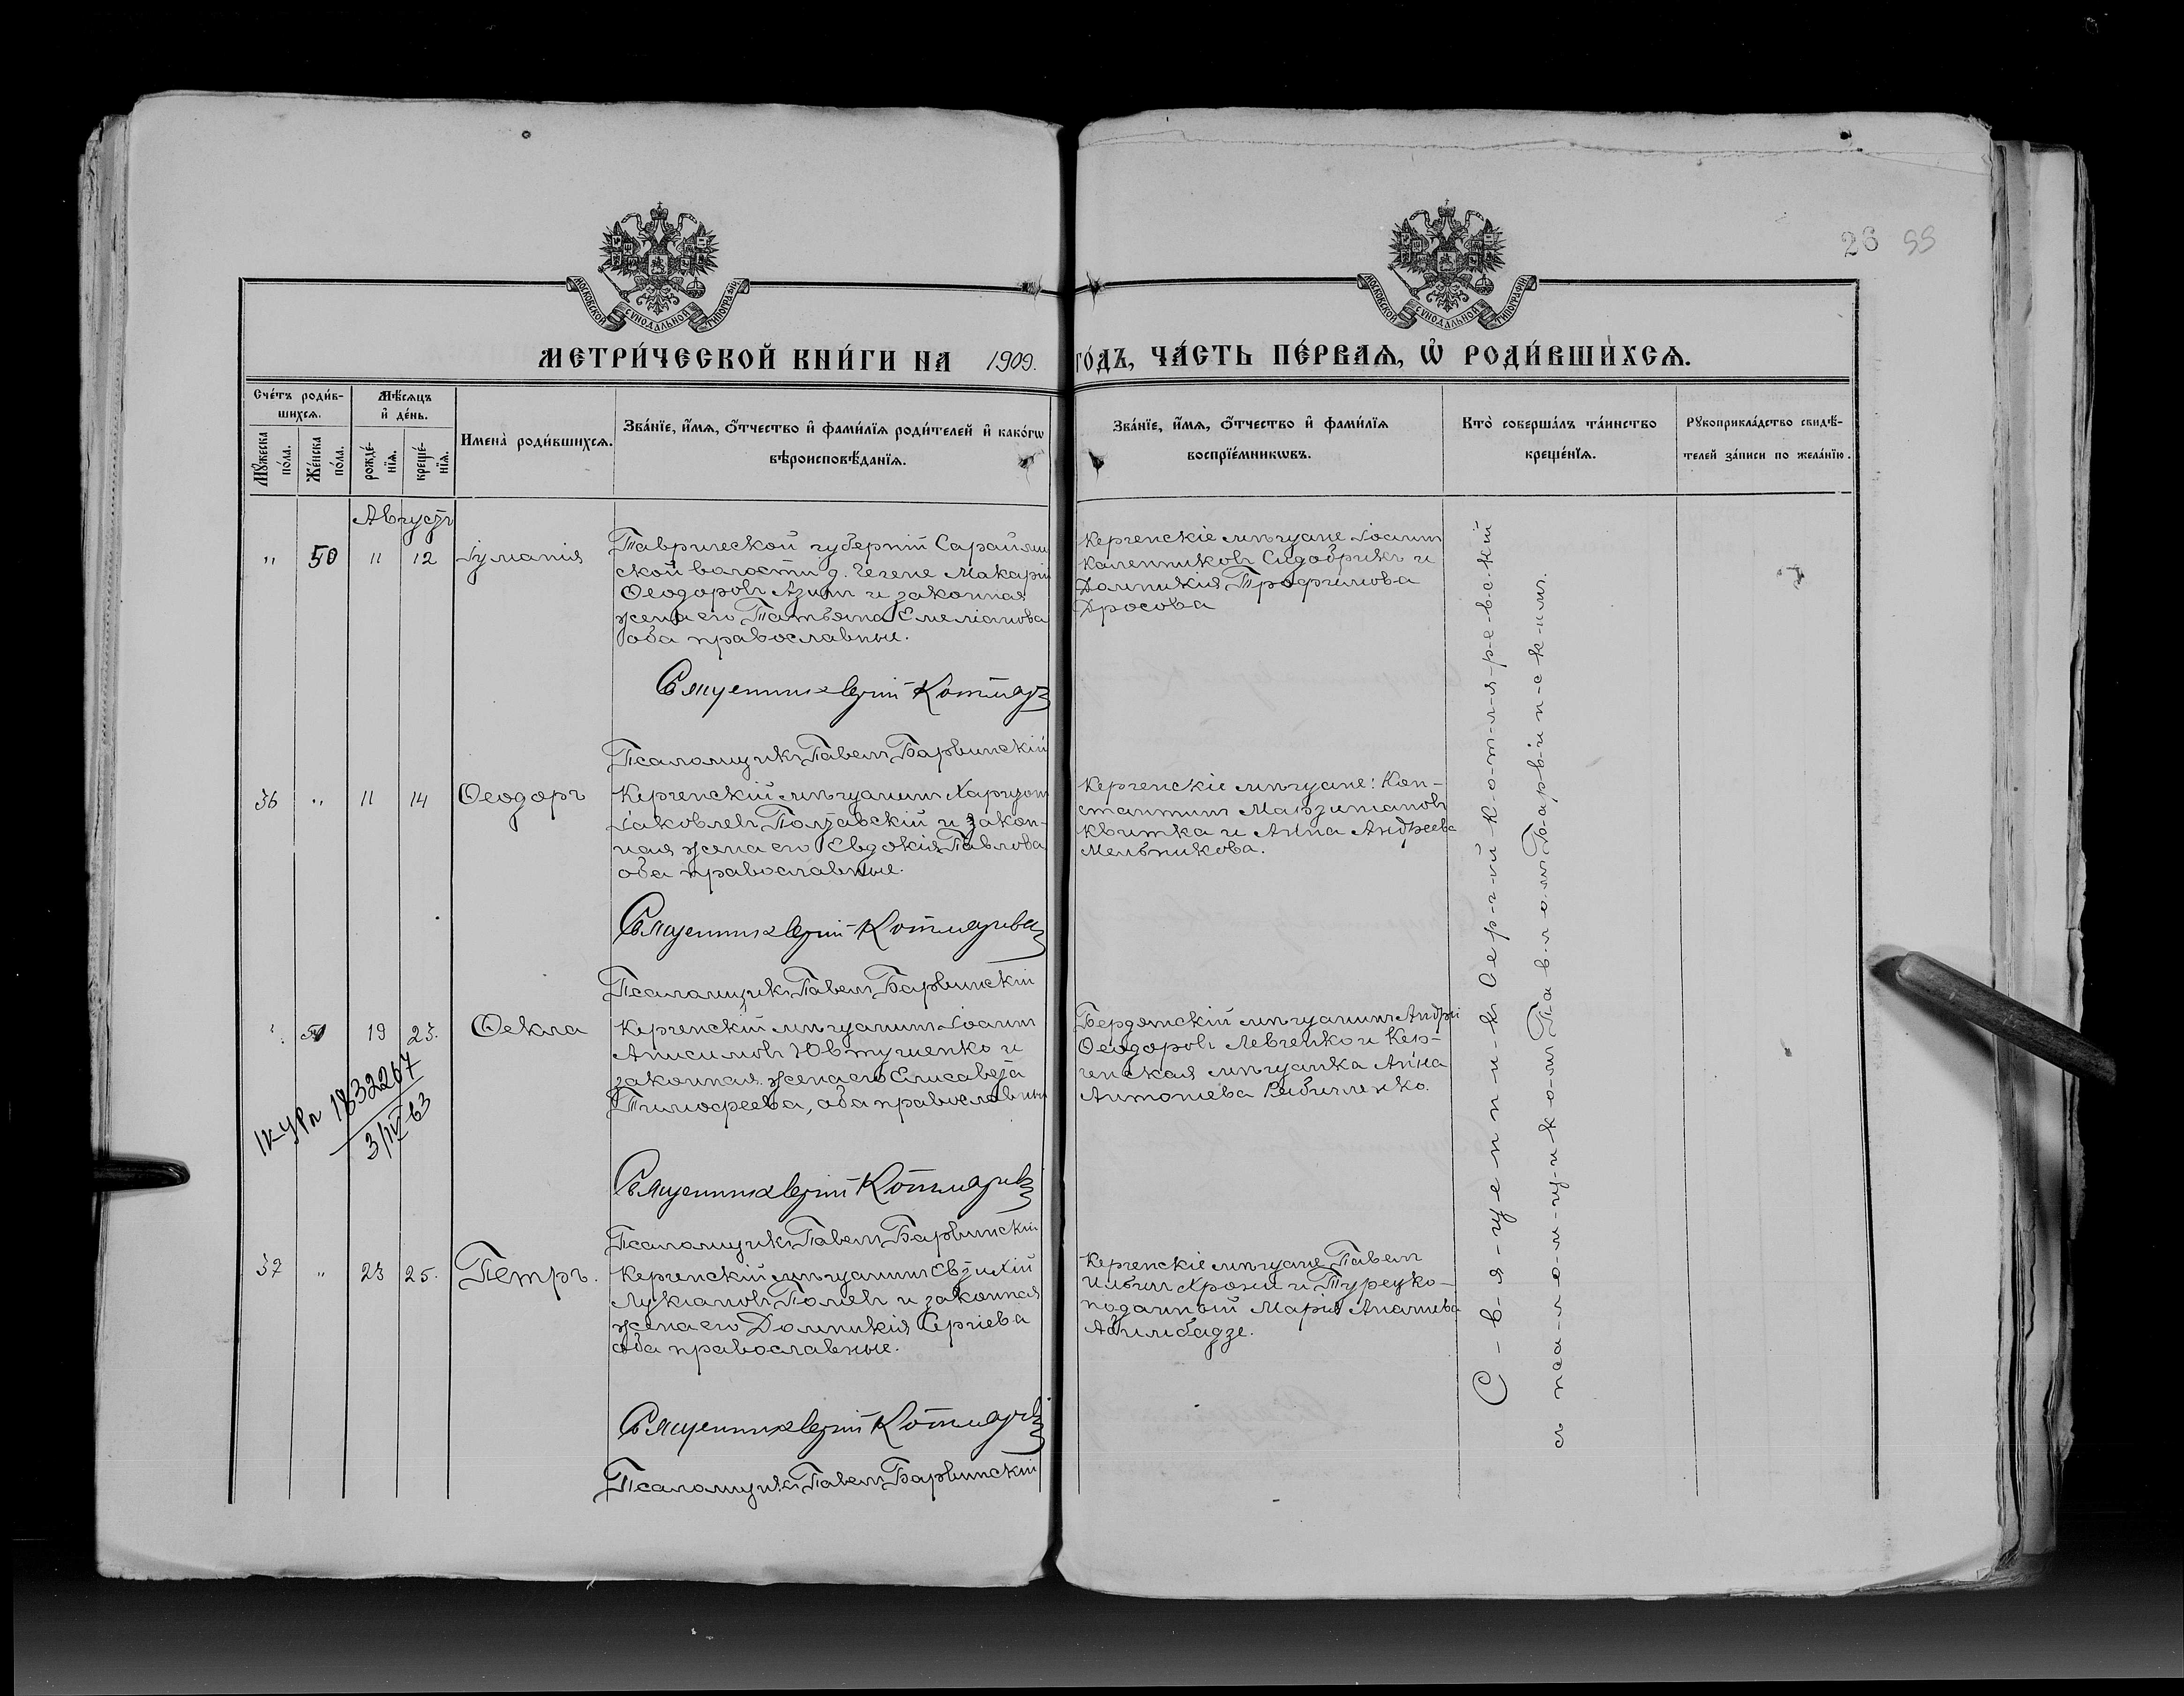 26 99
МОСКОВСКОЙ СѴНОДАЛЬНОЙ ТИПОГРАФІИ
МОСКОВСКОЙ СѴНОДАЛЬНОЙ ТИПОГРАФІИ
МЕТРИ́ЧЕСКОЙ КНИ́ГИ НА 1909. ГО́ДЪ, ЧА́СТЬ ПЕ́РВАЯ, Ѡ҆ РОДИ́ВШИХСЯ.
Сче́тъ роди́в-
шихся.
Мꙋ́жеска по́ла.
Же́нска по́ла.
Мѣ́сяцъ и҆ де́нь.
рожде́-нїя.
креще́-нїя.
Имена̀ роди́вшихся.
Зва́нїе, и҆́мя, ѻ҆́тчество и҆ фами́лїя роди́телей и҆ како́гѡ
вѣроисповѣ́данїя.
Зва́нїе, и҆́мя, ѻ҆́тчество и҆ фами́лїя
воспрїе́мникѡвъ.
Кто̀ соверша́лъ та́инство
креще́нїя.
Рꙋкоприкла́дство свидѣ́-
телей за́писи по жела́нїю.
Августъ
" 50 11 12 Іуліанія
Таврической губерніи Сараймин
ской волости д. Чегене Макарій
Ѳеодоровъ и законная
жена его Татьяна Емеліанова
оба православные.
Священникъ Сергій Котляр
Псаломщикъ Павелъ Барвинскій
Керченскіе мѣщане Іоаннъ
Калинниковъ и
Домникія Трофимова
Дросова
36 " 11 14 Ѳеодоръ
Керченскій мѣщанинъ Харитонъ
Іаковлевъ Полтавскій и закон-
ная жена его Евдокія Павлова
оба православные.
Священникъ Сергій Котляревс
Псаломщикъ Павелъ Барвинскій
Керченскіе мѣщане: Кон-
стантинъ Мартиніановъ
Квитка и Анна Андреева
Мельникова.
" 51 19 23. Ѳекла
Керченскій мѣщанинъ Іоаннъ
Анисимовъ Ювтушенко и
законная жена его Елисавета
Тимофеева, оба православные
Священникъ Сергій Котляревс
Псаломщикъ Павелъ Барвинскій
Бердянскій мѣщанинъ Андрей
Ѳеодоровъ Левченко и Кер-
ченская мѣщанка Анна
Антониева
1832267
3/IV 63
37 " 23 25. Петръ.
Керченскій мѣщанинъ Евтихій
Лукіановъ и законная
жена его Домникія Сергіева
оба православные.
Священникъ Сергій Котляревс
Псаломщикъ Павелъ Барвинскій
Керченскіе мѣщане Павелъ
Ильинъ и Турецко-
подданный Марія
С-в-я-щ-е-н-н-и-к-ъ С-е-р-г-і-й К-о-т-л-я-р-е-в-с-к-і-й
съ пса-л-о-м-щ-и-к-о-мъ Па-в-л-о-мъ Б-а-р-в-и-н-с-к-и-мъ.